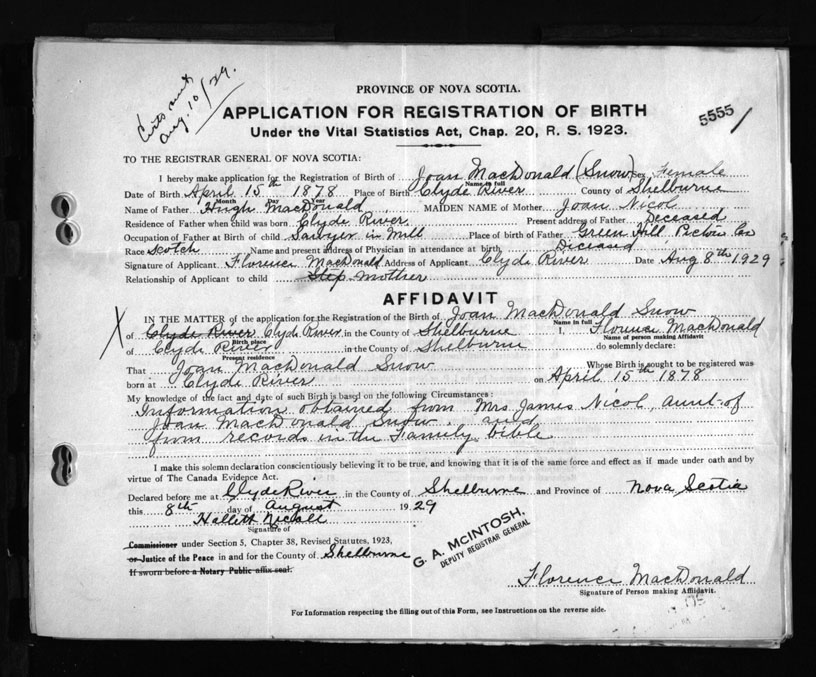 Certs sent
Aug. 10/29.
PROVINCE OF NOVA SCOTIA.
APPLICATION FOR REGISTRATION OF BIRTH
5555
Under the Vital Statistics Act, Chap. 20, R. S. 1923.
TO THE REGISTRAR GENERAL OF NOVA SCOTIA:
I hereby make application for the Registration of Birth of Joan MacDonald (Snow) Sex Female
Name in full
Date of Birth April 15th 1878 Place of Birth Clyde River County of Shelburne
Month Day Year
Name of Father Hugh MacDonald MAIDEN NAME of Mother Joan Nicol
Residence of Father when child was born Clyde River Present address of Father Deceased
Occupation of Father at Birth of child Sawyer in Mill Place of birth of Father Green Hill, Pictou Co
Race Scotch Name and present address of Physician in attendance at birth Diceased
Signature of Applicant Florence MacDonald Address of Applicant Clyde River Date Aug 8th 1929
Relationship of Applicant to child Step mother
AFFIDAVIT
X IN THE MATTER of the application for the Registration of the Birth of Joan MacDonald Snow
Name in full
of Clyde River Clyde River in the County of Shelburne I, Florence MacDonald
Birth place Name of person making Affidavit
of Clyde River in the County of Shelburne do solemnly declare:
Present residence
That Joan MacDonald Snow Whose Birth is sought to be registered was
born at Clyde River on April 15th 1878
My knowledge of the fact and date of such Birth is based on the following Circumstances:
Information obtained from Mrs James Nicol, aunt of
Joan MacDonald Snow, and
from records in the Family bible
I make this solemn declaration conscientiously believing it to be true, and knowing that it is of the same force and effect as if made under oath and by
virtue of The Canada Evidence Act.
Declared before me at Clyde River in the County of Shelburne and Province of Nova Scotia
this 8th day of August 1929
Hallett Nickoll
Signature of
Commissioner under Section 5, Chapter 38, Revised Statutes, 1923,
or Justice of the Peace in and for the County of Shelburne
If sworn before a Notary Public affix seal.
G. A. McINTOSH,
DEPUTY REGISTRAR GENERAL
Florence MacDonald
Signature of Person making Affidavit.
For Information respecting the filling out of this Form, see Instructions on the reverse side.